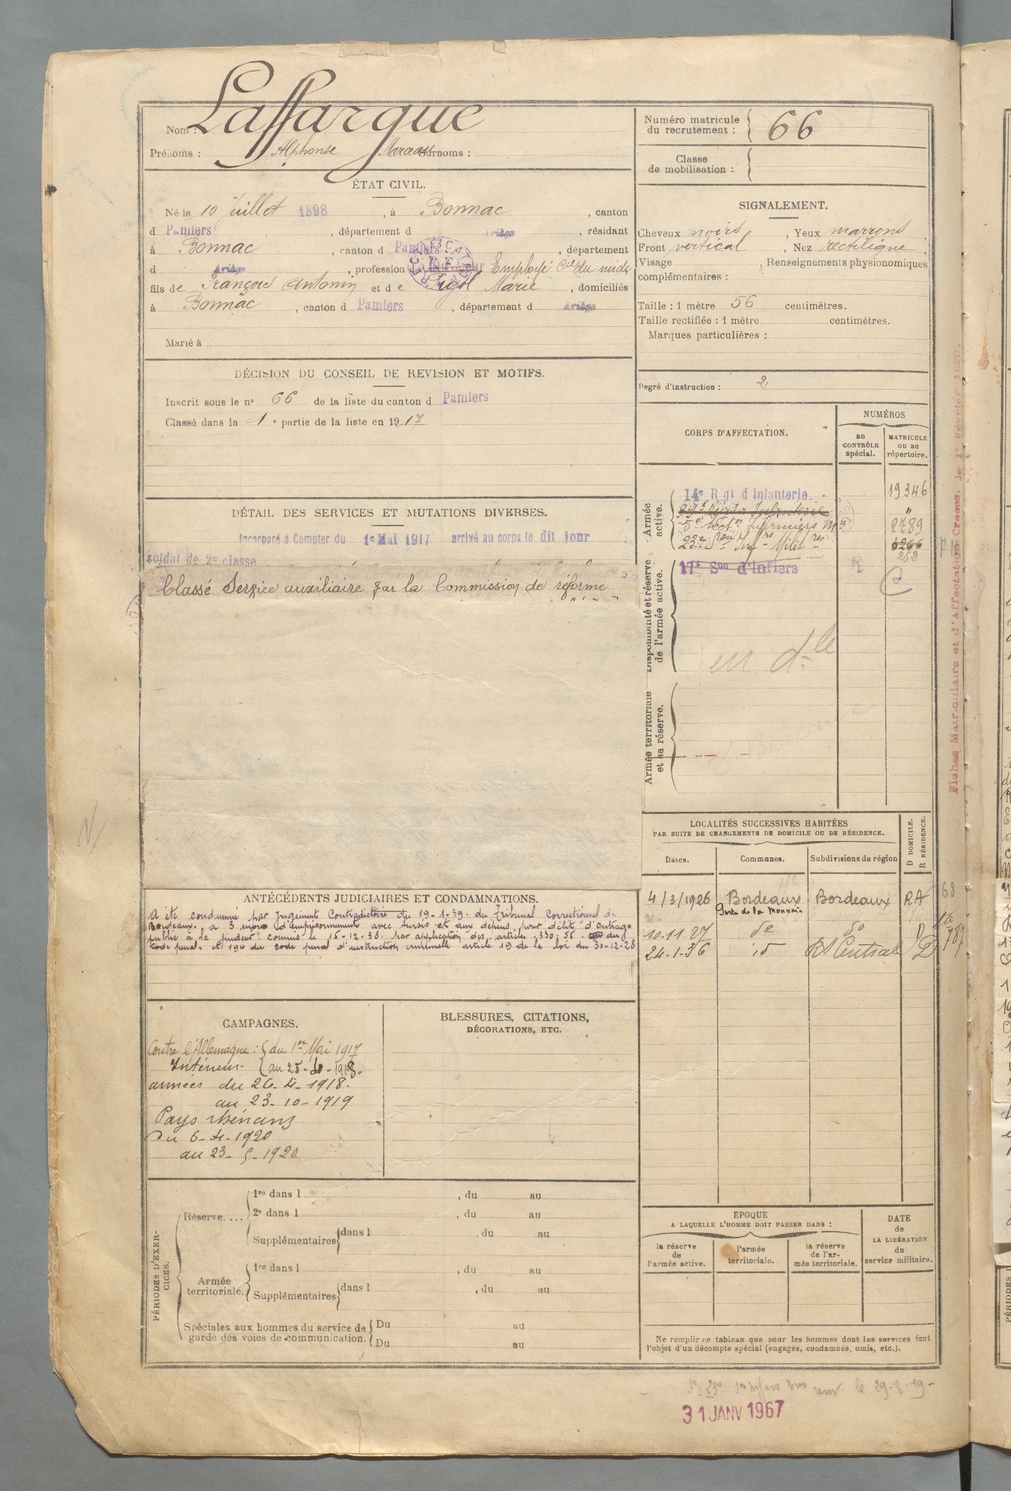 Nom : Laffargue
Prénoms : Alphonse Marceau Surnoms :
ÉTAT CIVIL.
Né le 10 Juillet 1898, à Bonnac, canton
d Pamiers, département d Ariège, résidant
à Bonnac, canton d Pamiers, département
d Ariège, profession d Employé Cie du midi
fils de François Antonin et de Marie, domiciliés
à Bonnac, canton d Pamiers, département d Ariège
Marié à
DÉCISION DU CONSEIL DE REVISION ET MOTIFS.
Inscrit sous le n° 66 de la liste du canton d Pamiers
Classé dans la 1e partie de la liste en 1917
DÉTAIL DES SERVICES ET MUTATIONS DIVERSES.
Incorporé à Compter du 1er Mai 1917 arrivé au corps le dit jour
soldat de 2e classe
Classé Service auxiliaire par la Commission de réforme
ANTÉCÉDENTS JUDICIAIRES ET CONDAMNATIONS.
A été condamné par Jugement Contradictoire du 19-1-39 du Tribunal Correctionnel de
Bordeaux, à 3 mois d'emprisonnement avec sursis et aux dépens pour délit d'outrage
public à la pudeur commis le 15-12-38 par application des articles 330, 55 du
Code pénal et 194 du code d'instruction criminelle article 19 de la loi du 30-12-28
CAMPAGNES.
Contre l'Allemagne : du 1er Mai 1917
Intérieur au 25-4-1918.
armées du 26-4-1918.
au 23-10-1919
Pays rhénans
Du 6-4-1920
au 23-5-1920
BLESSURES, CITATIONS,
DÉCORATIONS, ETC.
PÉRIODES D'EXERCICES.
Réserve....
1re dans l , du au
2e dans l , du au
Supplémentaires dans l , du au
Armée territoriale.
1re dans l , du au
Supplémentaires dans l , du au
Spéciales aux hommes du service de
garde des voies de communication.
Du au
Du au
Numéro matricule
du recrutement : 66
Classe
de mobilisation :
SIGNALEMENT.
Cheveux noirs, Yeux marrons
Front vertical, Nez rectiligne
Visage , Renseignements physionomiques
complémentaires :
Taille : 1 mètre 56 centimètres.
Taille rectifiée : 1 mètre centimètres.
Marques particulières :
Degré d'instruction : 2
CORPS D'AFFECTATION.
NUMÉROS
au
CONTRÔLE
spécial.
MATRICULE
ou au
répertoire.
Armée
active.
14e Rgt d Infanterie. 19346
"
5e Infirmiers 8789
23e
6266
252
17e Son d'Infiers
Disponibilité et réserve
de l'armée active.
Armée territoriale
et sa réserve.
LOCALITÉS SUCCESSIVES HABITÉES
PAR SUITE DE CHANGEMENTS DE DOMICILE OU DE RÉSIDENCE.
Dates. Communes. Subdivisions de région
D DOMICILE.
R RÉSIDENCE.
4/3/1926 Bordeaux Bordeaux RA
de la Monnaie
10.11.27 do do D
24-1-36 id RS Central D
EPOQUE
A LAQUELLE L'HOMME DOIT PASSER DANS :
la réserve
de l'armée active.
l'armée
territoriale.
la réserve
de l'ar-
mée territoriale.
DATE
de
LA LIBÉRATION
du
service militaire.
Ne remplir ce tableau que pour les hommes dont les services font
l'objet d'un décompte spécial (engagés, condamnés, omis, etc.).
le 29-8-19-
31 JANV 1967
Fiches Matriculaire et d'Affectation Créées le 1er Février 1920.